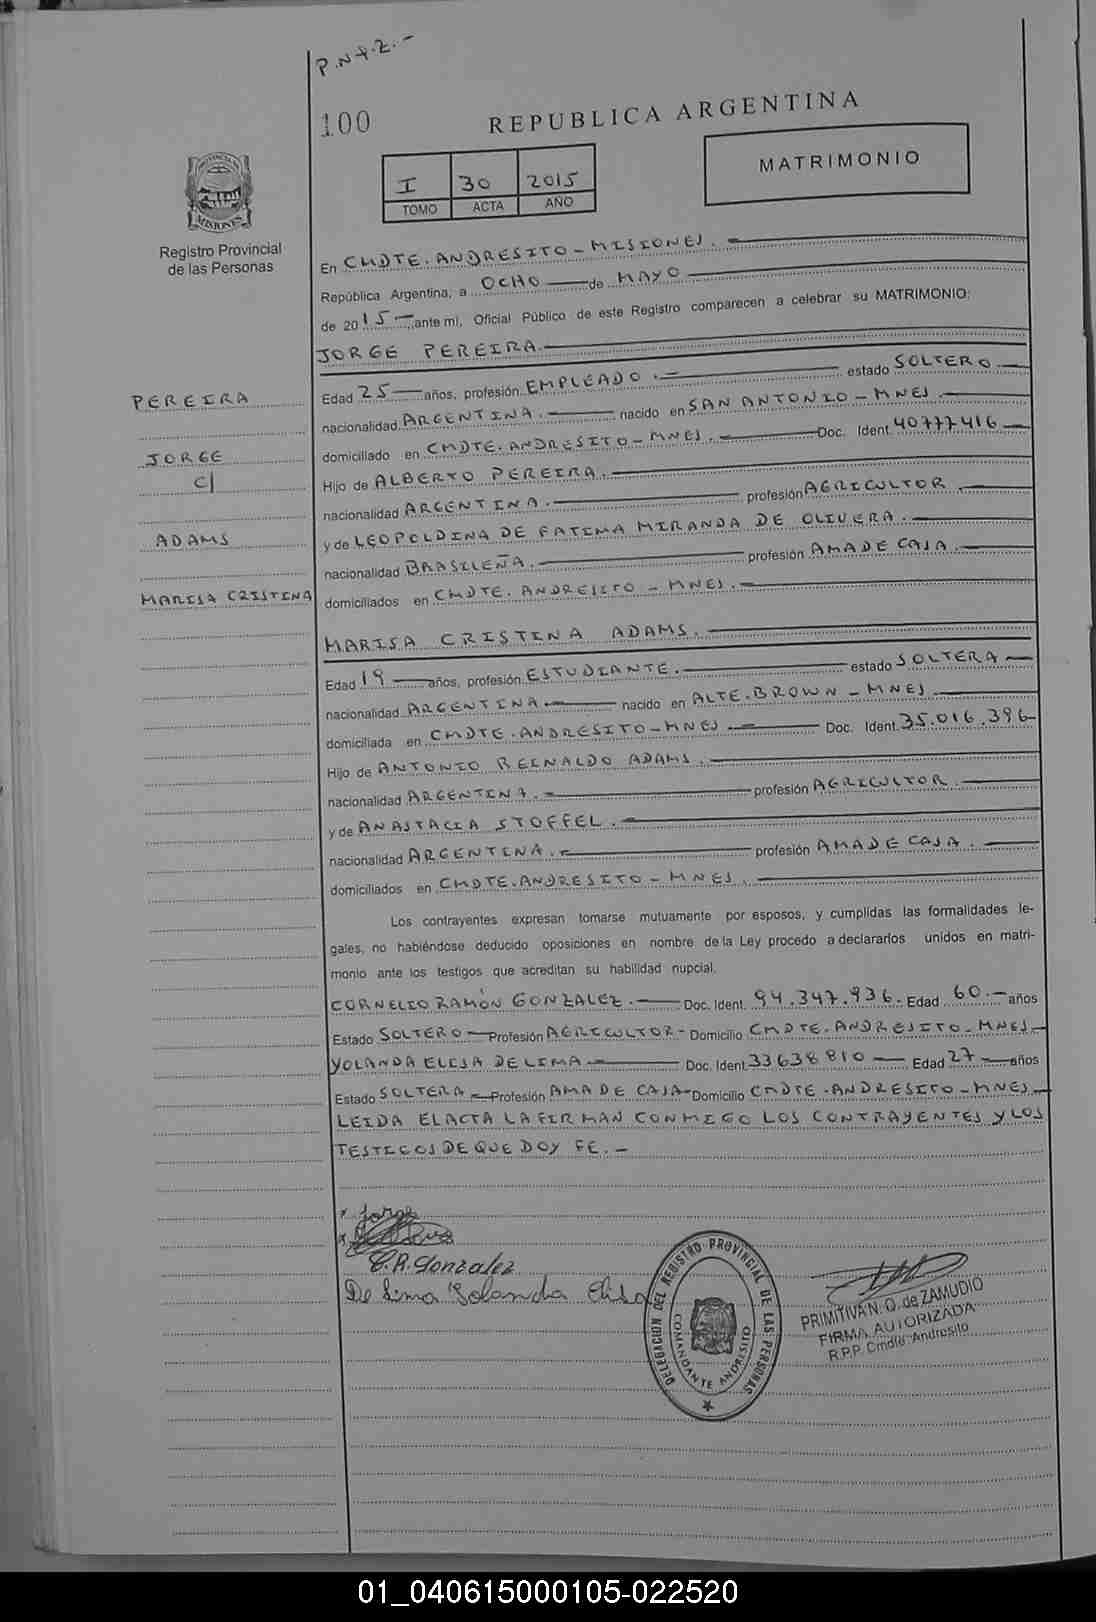 P.N.f.Z.-
100
REPUBLICA ARGENTINA
I 30 2015
TOMO ACTA AÑO
MATRIMONIO
PROVINCIA DE
MISIONES
Registro Provincial
de las Personas
En CMDTE. ANDRESITO - MISIONES.
República Argentina, a OCHO de MAYO
de 2015 ante mi, Oficial Público de este Registro comparecen a celebrar su MATRIMONIO:
JORGE PEREIRA.
Edad 25 años, profesión EMPLEADO.- estado SOLTERO
nacionalidad ARGENTINA. nacido en SAN ANTONIO - MNES.
domiciliado en CMDTE. ANDRESITO - MNES. Doc. Ident. 40777416
Hijo de ALBERTO PEREIRA.
nacionalidad ARGENTINA. profesión AGRICULTOR.
y de LEOPOLDINA DE FATIMA MIRANDA DE OLIVERA.
nacionalidad BRASILEÑA. profesión AMA DE CASA.
domiciliados en CMDTE. ANDRESITO - MNES.
PEREIRA
JORGE
C/
ADAMS
MARISA CRISTINA
MARISA CRISTINA ADAMS.
Edad 19 años, profesión ESTUDIANTE. estado SOLTERA
nacionalidad ARGENTINA. nacido en ALTE. BROWN - MNES
domiciliada en CMDTE. ANDRESITO - MNES Doc. Ident. 35.016.396
Hijo de ANTONIO REINALDO ADAMS.
nacionalidad ARGENTINA. profesión AGRICULTOR.
y de ANASTACIA STOFFEL.
nacionalidad ARGENTINA. profesión AMA DE CASA.
domiciliados en CMDTE. ANDRESITO - MNES.
Los contrayentes expresan tomarse mutuamente por esposos, y cumplidas las formalidades le-
gales, no habiéndose deducido oposiciones en nombre de la Ley procedo a declararlos unidos en matri-
monio ante los testigos que acreditan su habilidad nupcial.
CORNELIO RAMÓN GONZALEZ. Doc. Ident. 94.347.936. Edad 60.- años
Estado SOLTERO Profesión AGRICULTOR- Domicilio CMDTE. ANDRESITO - MNES
YOLANDA ELISA DE LIMA. Doc. Ident. 33638810 Edad 27 años
Estado SOLTERA Profesión AMA DE CASA Domicilio CMDTE. ANDRESITO - MNES
LEIDA EL ACTA LA FIRMAN CONMIGO LOS CONTRAYENTES Y LOS
TESTIGOS DE QUE DOY FE.-
x Jorge
C.R. Gonzalez
De Lima Yolanda Elisa
DELEGACION DEL REGISTRO PROVINCIAL DE LAS PERSONAS
COMANDANTE ANDRESITO
PRIMITIVA N. O. de ZAMUDIO
FIRMA AUTORIZADA
R.P.P. Cmdte. Andresito
01_040615000105-022520